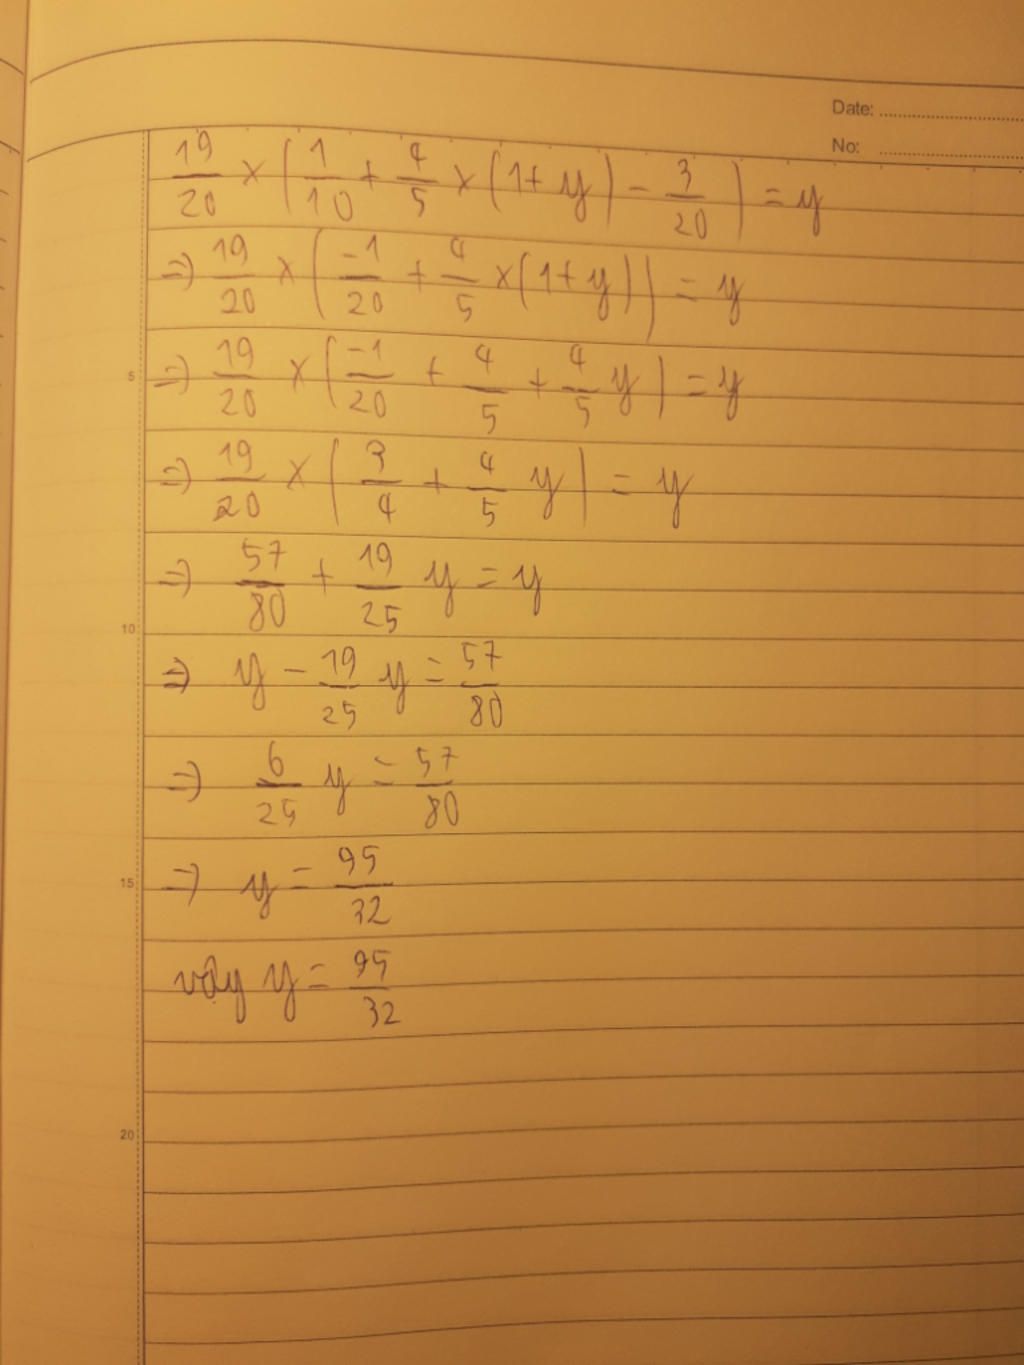 Date:
No:
19/20 × (1/10 + 4/5 × (1+y) - 3/20) = y
=> 19/20 × (-1/20 + 4/5 × (1+y)) = y
5 => 19/20 × (-1/20 + 4/5 + 4/5 y) = y
=> 19/20 × (3/4 + 4/5 y) = y
=> 57/80 + 19/25 y = y
10
=> y - 19/25 y = 57/80
=> 6/25 y = 57/80
15 => y = 95/32
vậy y = 95/32
20